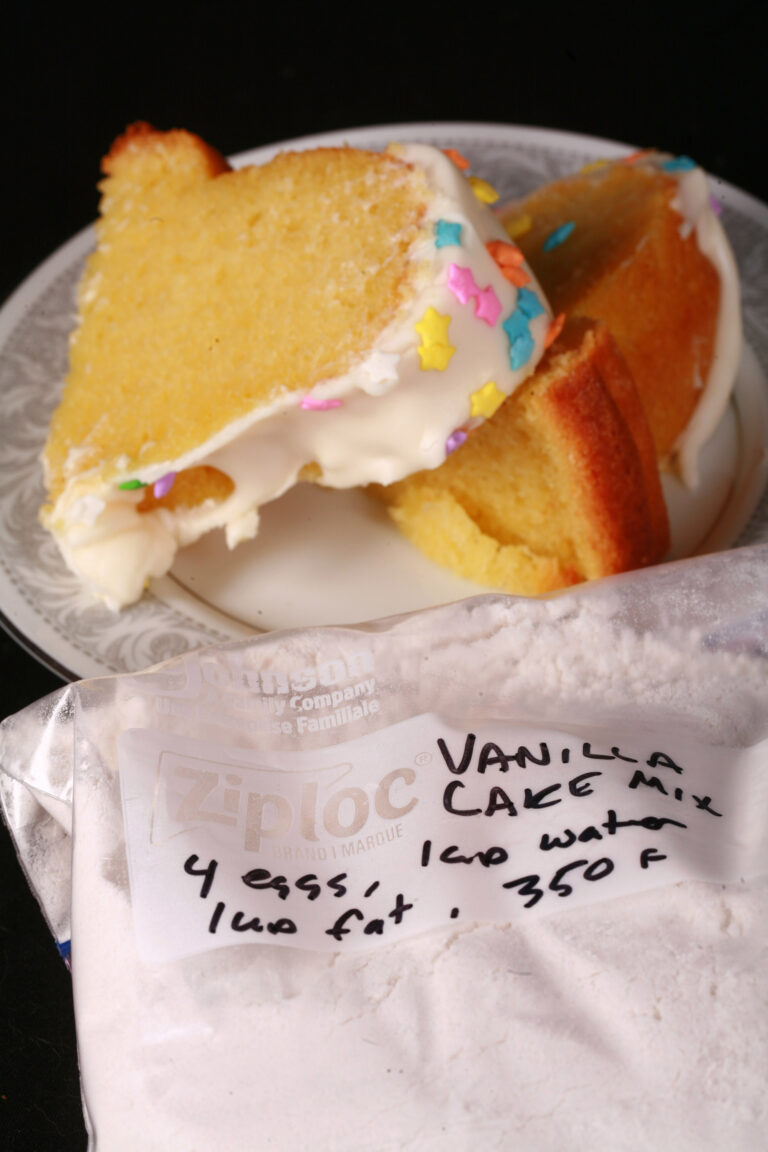 Johnson
Family Company
Familiale
Ziploc®
BRAND | MARQUE
VANILLA
CAKE MIX
4 eggs, 1 cup water
1 cup fat, 350 F